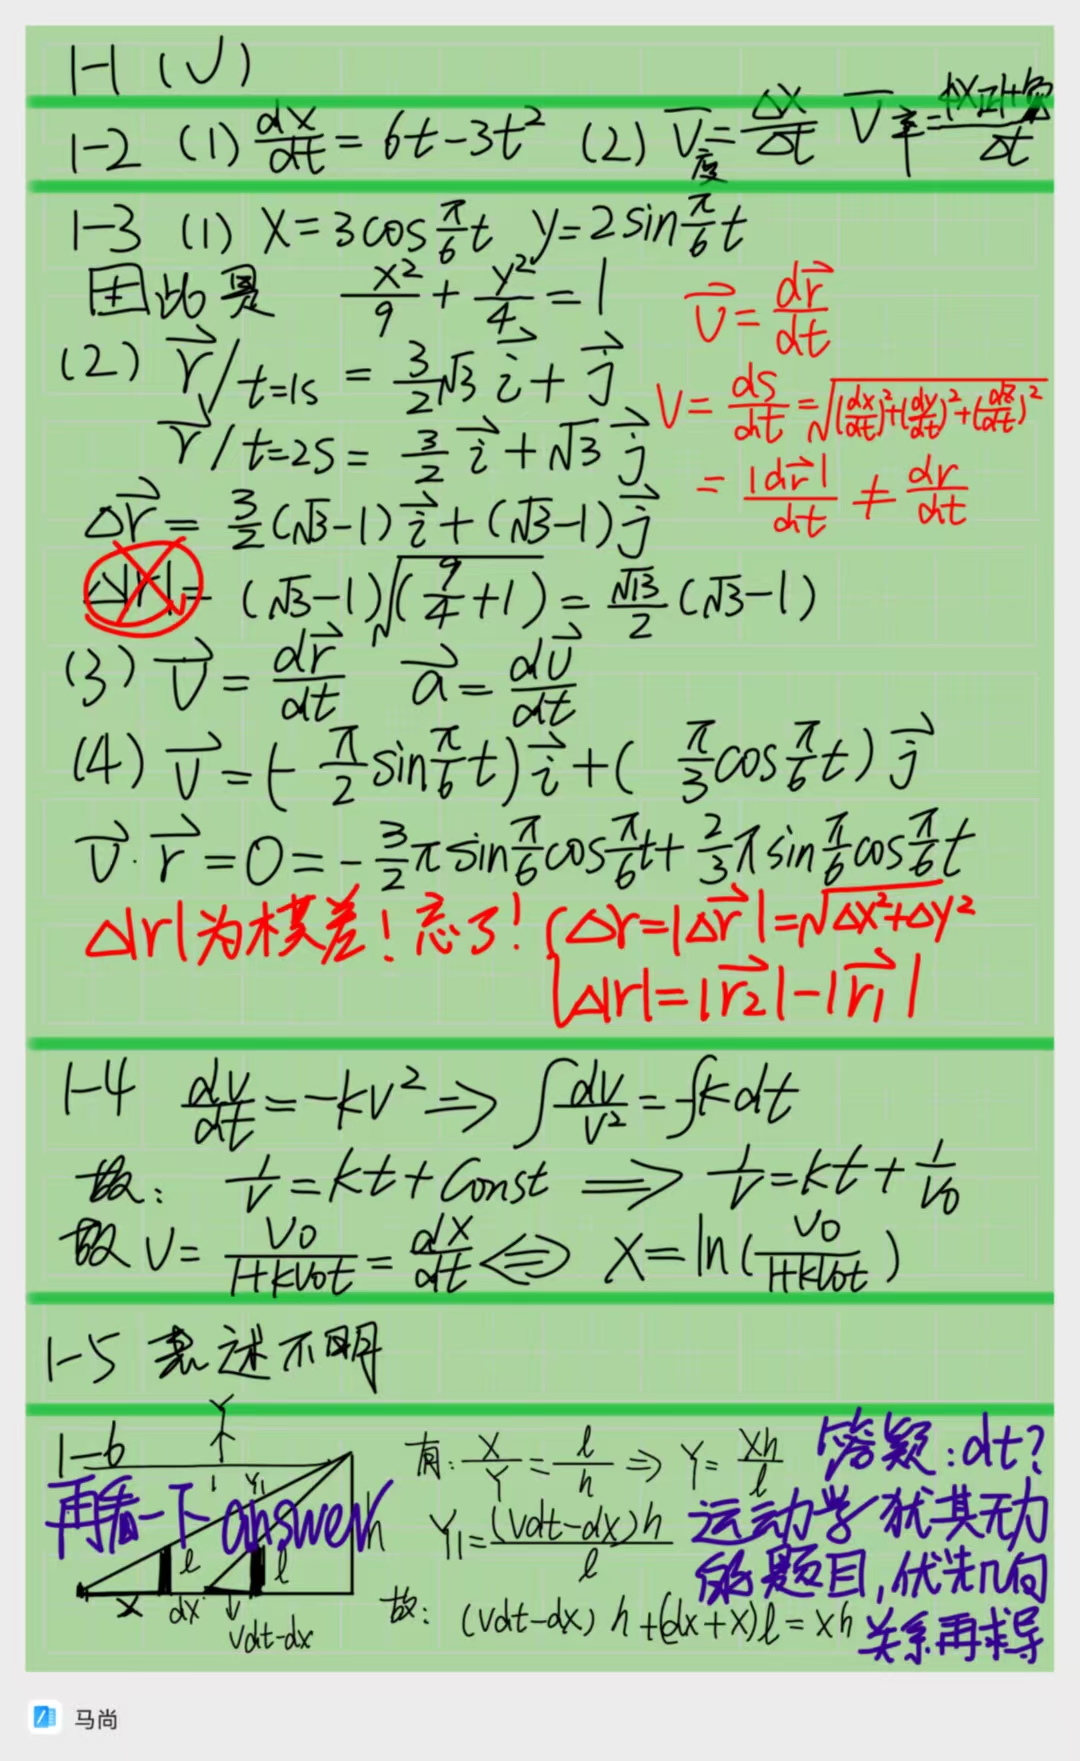 1-1 (√)
1-2 (1) dx/dt = 6t-3t² (2) V̄度 = Δx/Δt V̄率 = /Δt
1-3 (1) x = 3cos π/6 t y = 2sin π/6 t
因此是 x²/9 + y²/4 = 1
v⃗ = dr⃗/dt
(2) r⃗/t=1s = 3/2 √3 i⃗ + j⃗
v = ds/dt = √((dx/dt)²+(dy/dt)²+(dz/dt)²)
r⃗/t=2s = 3/2 i⃗ + √3 j⃗
= |dr⃗|/dt ≠ dr/dt
Δr⃗ = 3/2(√3-1) i⃗ + (√3-1) j⃗
Δ|r| = (√3-1)√(9/4+1) = √13/2 (√3-1)
(3) v⃗ = dr⃗/dt a⃗ = dv⃗/dt
(4) v⃗ = (- π/2 sin π/6 t) i⃗ + ( π/3 cos π/6 t) j⃗
v⃗·r⃗ = 0 = - 3/2 π sin π/6 cos π/6 t + 2/3 π sin π/6 cos π/6 t
Δ|r|为模差!忘了! { Δr=|Δr⃗|=√Δx²+Δy²
Δ|r|=|r⃗2|-|r⃗1|
1-4 dv/dt = -kv² ⇒ ∫dv/v² = -∫k dt
故: 1/v = kt + Const ⇒ 1/v = kt + 1/v0
故 v = v0/1+kv0t = dx/dt ⇔ x = ln(v0/1+kv0t)
1-5 表述不明
1-6
Y
Y1
再看一下 answer
h
l
l
x
dx
v
vdt-dx
有: X/Y = l/h ⇒ Y = xh/l
Y1 = (vdt-dx)h/l
故: (vdt-dx) h + (dx+x)l = xh
答疑:dt?
运动学犹其无力
的题目,优先几何
关系再求导
马尚